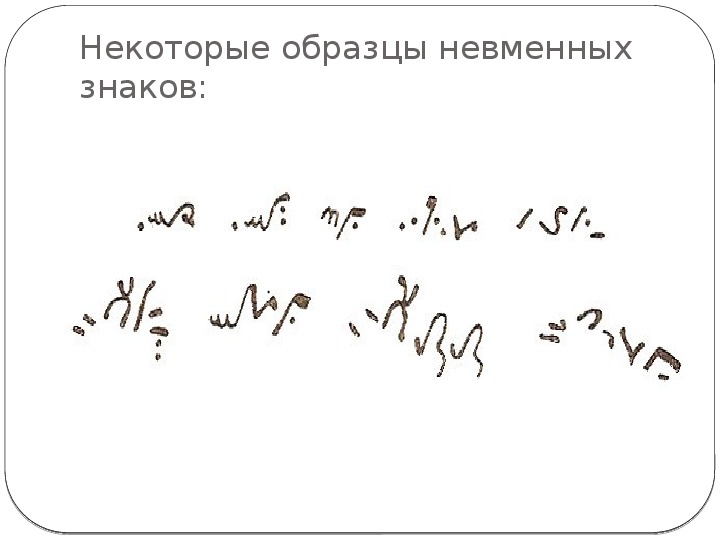 Некоторые образцы невменных
знаков: